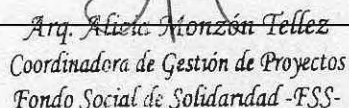 Arq. Alicia Monzón Tellez
Coordinadora de Gestión de Proyectos
Fondo Social de Solidaridad -FSS-